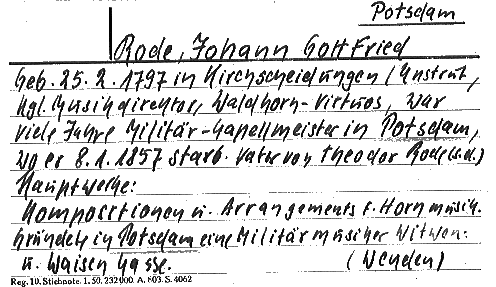 Potsdam
Rode, Johann Gottfried
Geb. 25. 2. 1797 in Kirchscheidungen/Unstrut,
Kgl. Musikdirektor, Waldhorn-Virtuos, war
viele Jahre Militär-Kapellmeister in Potsdam,
wo er 8. 1. 1857 starb. Vater von Theodor Rode (s.d.)
Hauptwerke:
Kompositionen u. Arrangements f. Hornmusik.
Gründete in Potsdam eine Militärmusiker Witwen-
u. Waisen Kasse. (Wenden)
Reg. 10. Stiebnote. 1. 50. 232000. A. 803. S. 4062